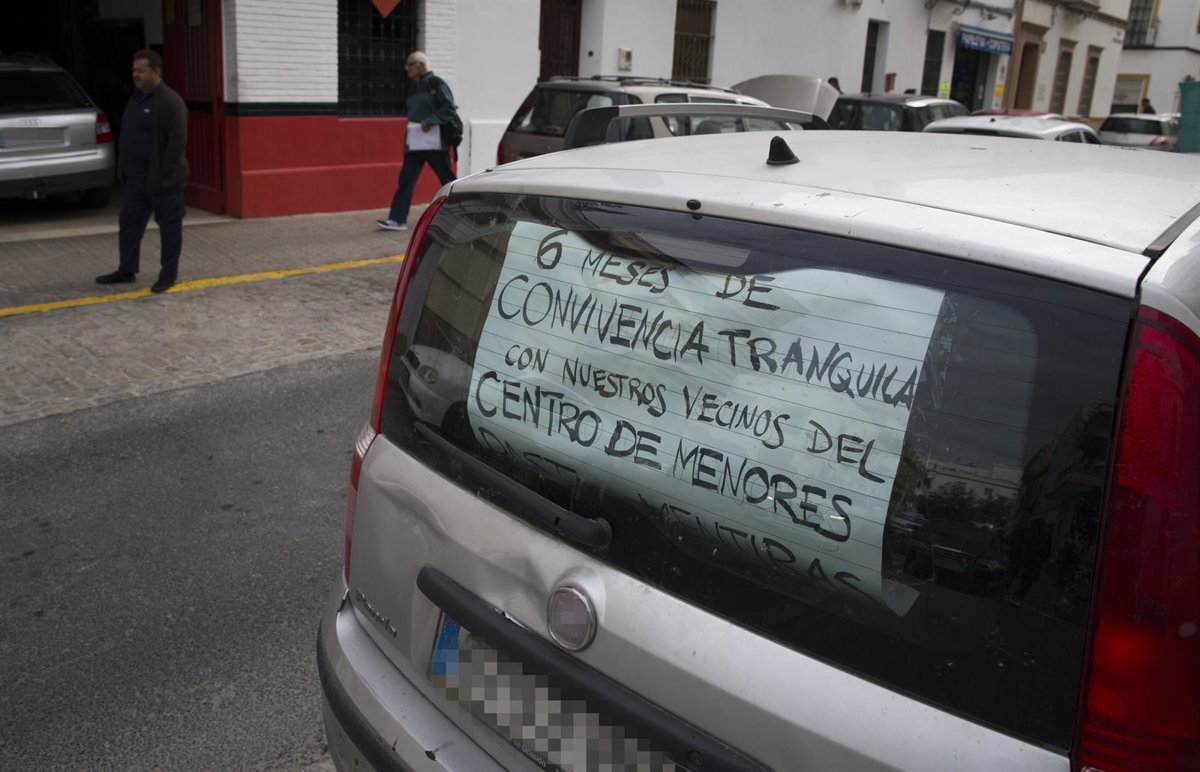 6 MESES DE
CONVIVENCIA TRANQUILA
CON NUESTROS VECINOS DEL
CENTRO DE MENORES
MENTIRAS